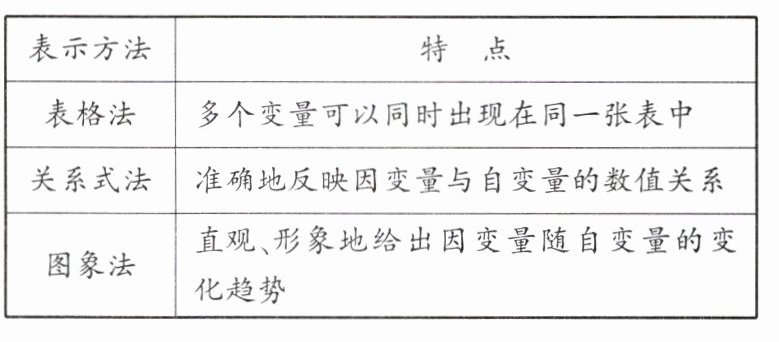 表示方法 特 点
表格法 多个变量可以同时出现在同一张表中
关系式法 准确地反映因变量与自变量的数值关系
图象法 直观、形象地给出因变量随自变量的变
化趋势